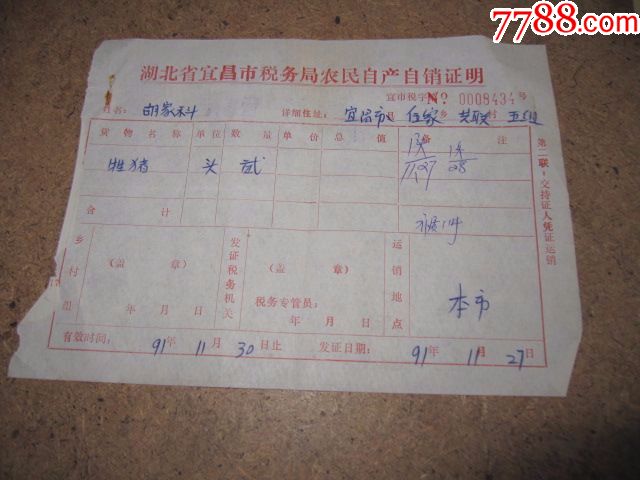 7788.com
中国收藏热线
湖北省宜昌市税务局农民自产自销证明
宜市税字 No 0008434 号
姓名: 胡家科 详细住址: 宜昌市 伍家 乡 共联 村 五组
货物名称 单位 数量 单价 总值 备注
牲猪 头 贰
合计
乡村组 (盖章) 年 月 日
发证税务机关 (盖章) 税务专管员: 年 月 日
运销地点 本市
有效时间: 91年 11月 30日止 发证日期: 91年 11月 27日
第二联:交持证人凭证运销